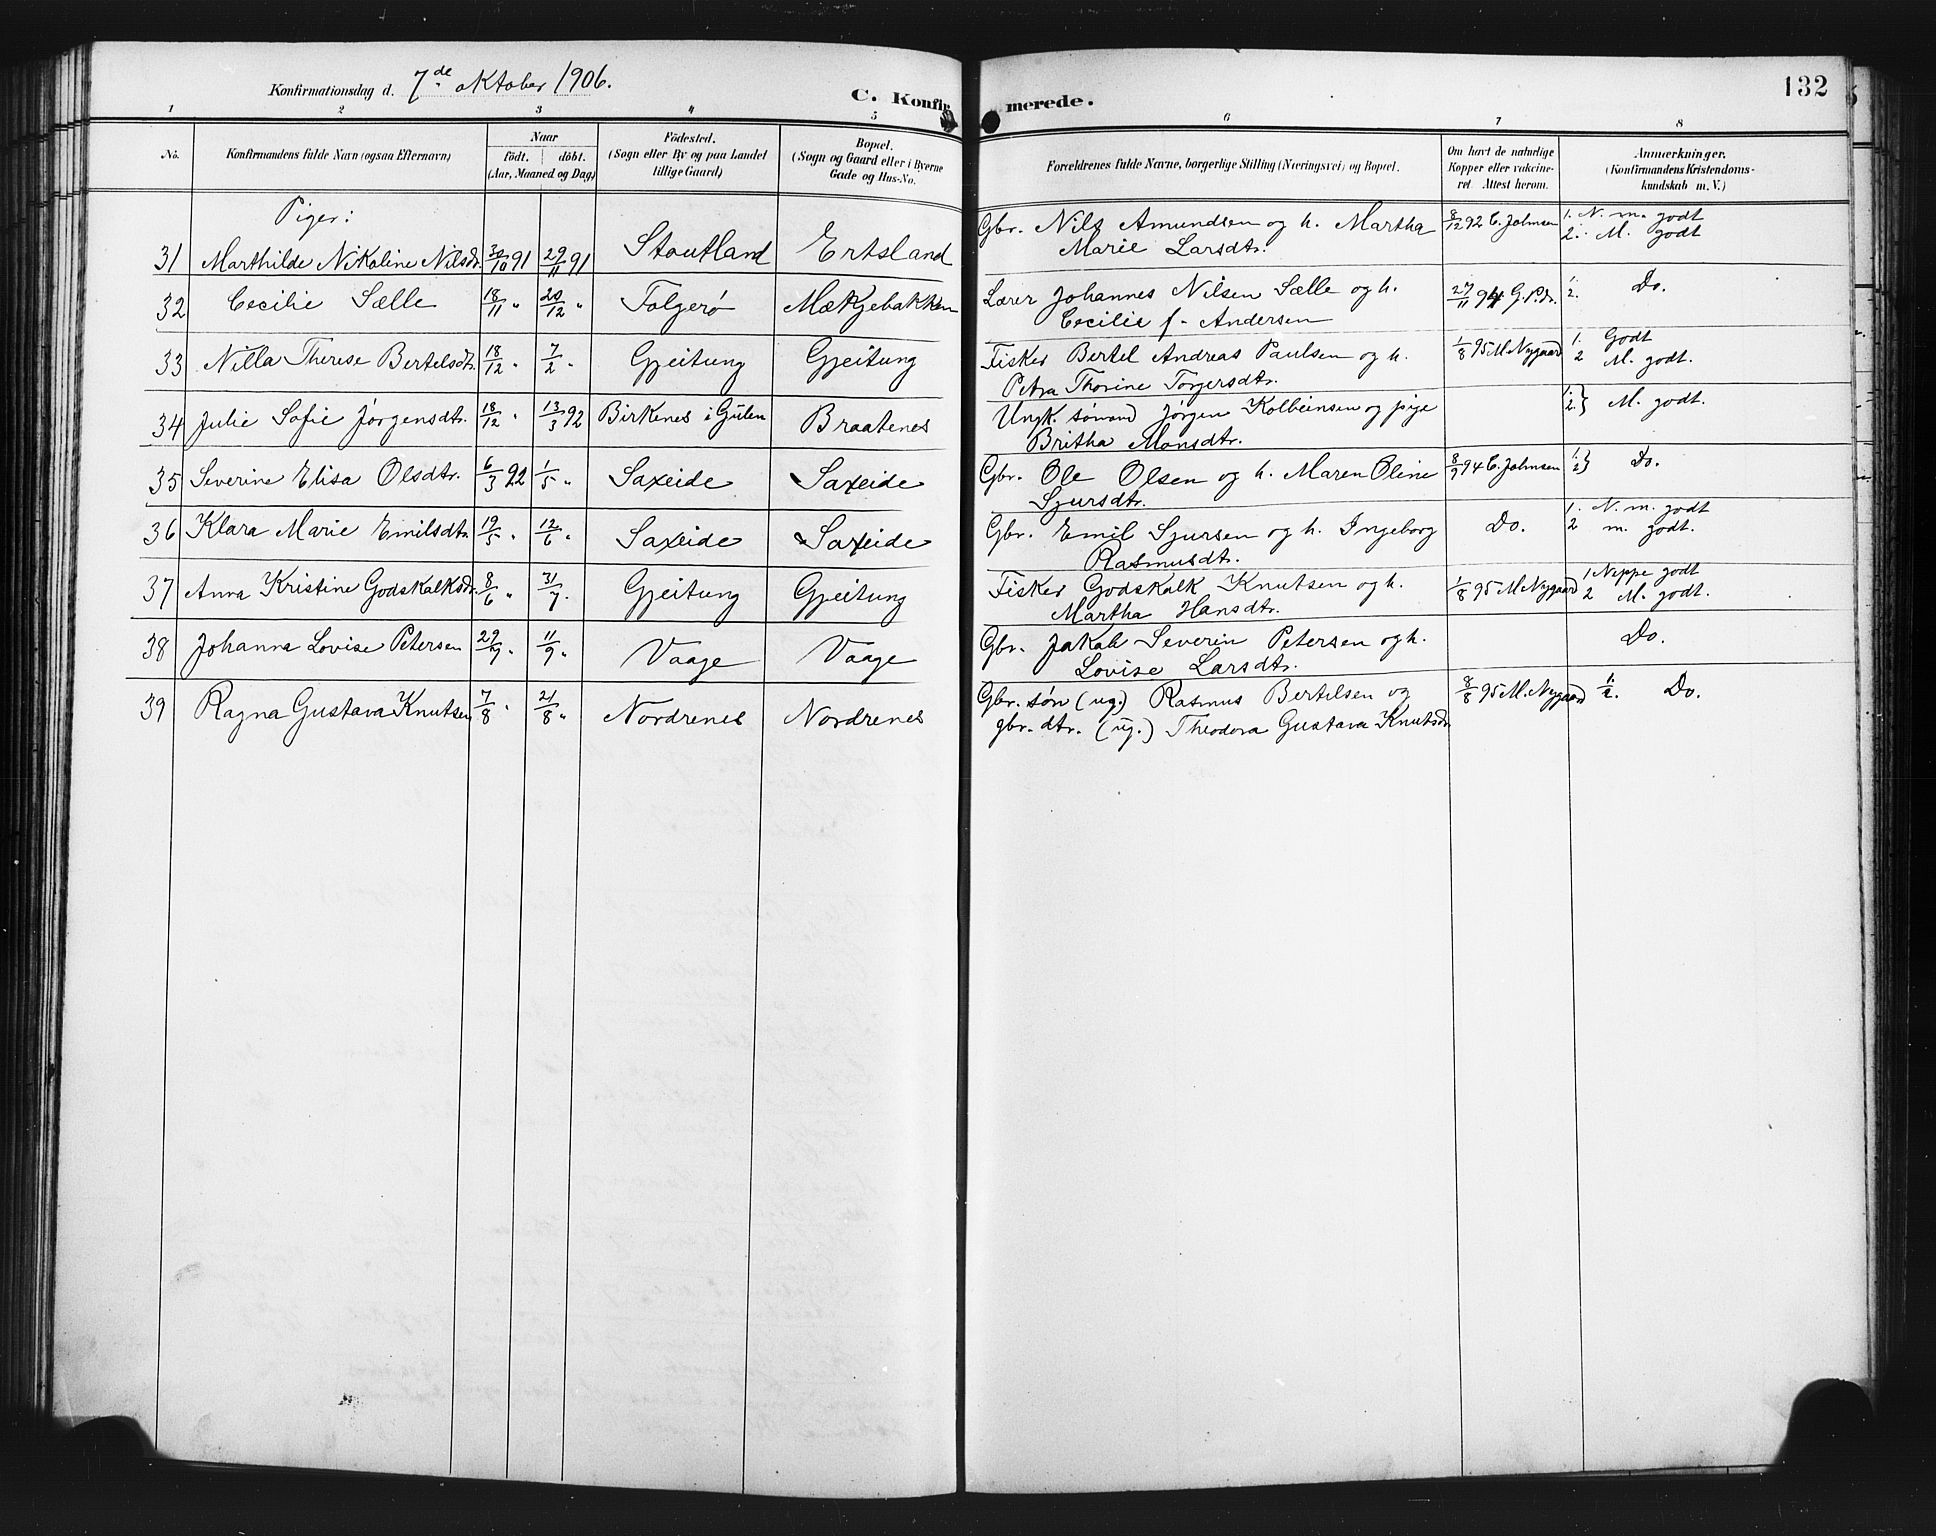 Konfirmationsdag d. 7de oktober 1906.
C. Konfir merede. 132
1 2 3 4 5 6 7 8
No. Konfirmandens fulde Navn (ogsaa Efternavn) Naar födt. döbt. (Aar, Maaned og Dag) Födested. (Sogn eller By og paa Landet tillige Gaard) Bopæl. (Sogn og Gaard eller i Byerne Gade og Hus-No. Forældrenes fulde Navne, borgerlige Stilling (Næringsvei) og Bopæl. Om havt de naturlige Kopper eller vakcineret. Attest herom. Anmærkninger. (Konfirmandens Kristendomskundskab m. V.)
Piger:
31 Marthilde Nikoline Nilsdr. 30/10 91 29/11 91 Stoutland Ertsland Gbr. Nils Amundsen og h. Martha Marie Larsdtr. 8/12 92 C. Johnsen 1. N. m. godt 2. M. godt
32 Cecilie Sælle 18/11 " 20/12 " Folgerø Mækjebakken Lærer Johannes Nilsen Sælle og h. Cecilie f. Andersen 27/11 94 1. 2. Do.
33 Nilla Therese Bertelsdtr. 18/12 " 7/2 " Gjeitung Gjeitung Fisker Bertel Andreas Paulsen og h. Petra Thorine Torgersdtr. 1/8 95 M. Nygaard 1. Godt 2 M. godt.
34 Julie Sofie Jørgensdtr. 18/12 " 13/3 92 Birkenes i Gulen Braatenes Ungk. sømand Jørgen Kolbeinsen og pige Britha Monsdtr. 1. 2. } M. godt.
35 Severine Elisa Olsdtr. 6/3 92 1/5 " Saxeide Saxeide Gbr. Ole Olsen og h. Maren Oline Sjursdtr. 8/9 94 C. Johnsen 1 2 } Do.
36 Klara Marie Emilsdtr. 19/5 " 12/6 " Saxeide Saxeide Gbr. Emil Sjursen og h. Ingeborg Rasmusdtr. Do. 1. N. m. godt 2 m. godt.
37 Anna Kristine Godskalksdr. 8/6 " 31/7 . Gjeitung Gjeitung Fisker Godskalk Knutsen og h. Martha Hansdtr. 1/8 95 M. Nygaard 1 Neppe godt 2 M. godt.
38 Johanna Lovise Petersen 29/7 " 11/9 " Vaage Vaage Gbr. Jakob Severin Petersen og h. Lovise Larsdtr. Do.
39 Ragna Gustava Knutsen 7/8 " 21/8 " Nordrenes Nordrenes Gbr. søn (ug.) Rasmus Bertelsen og gbr. dtr. (ug.) Theodora Gustava Knutsdr. 8/8 95 M. Nygaard 1. 2. Do.